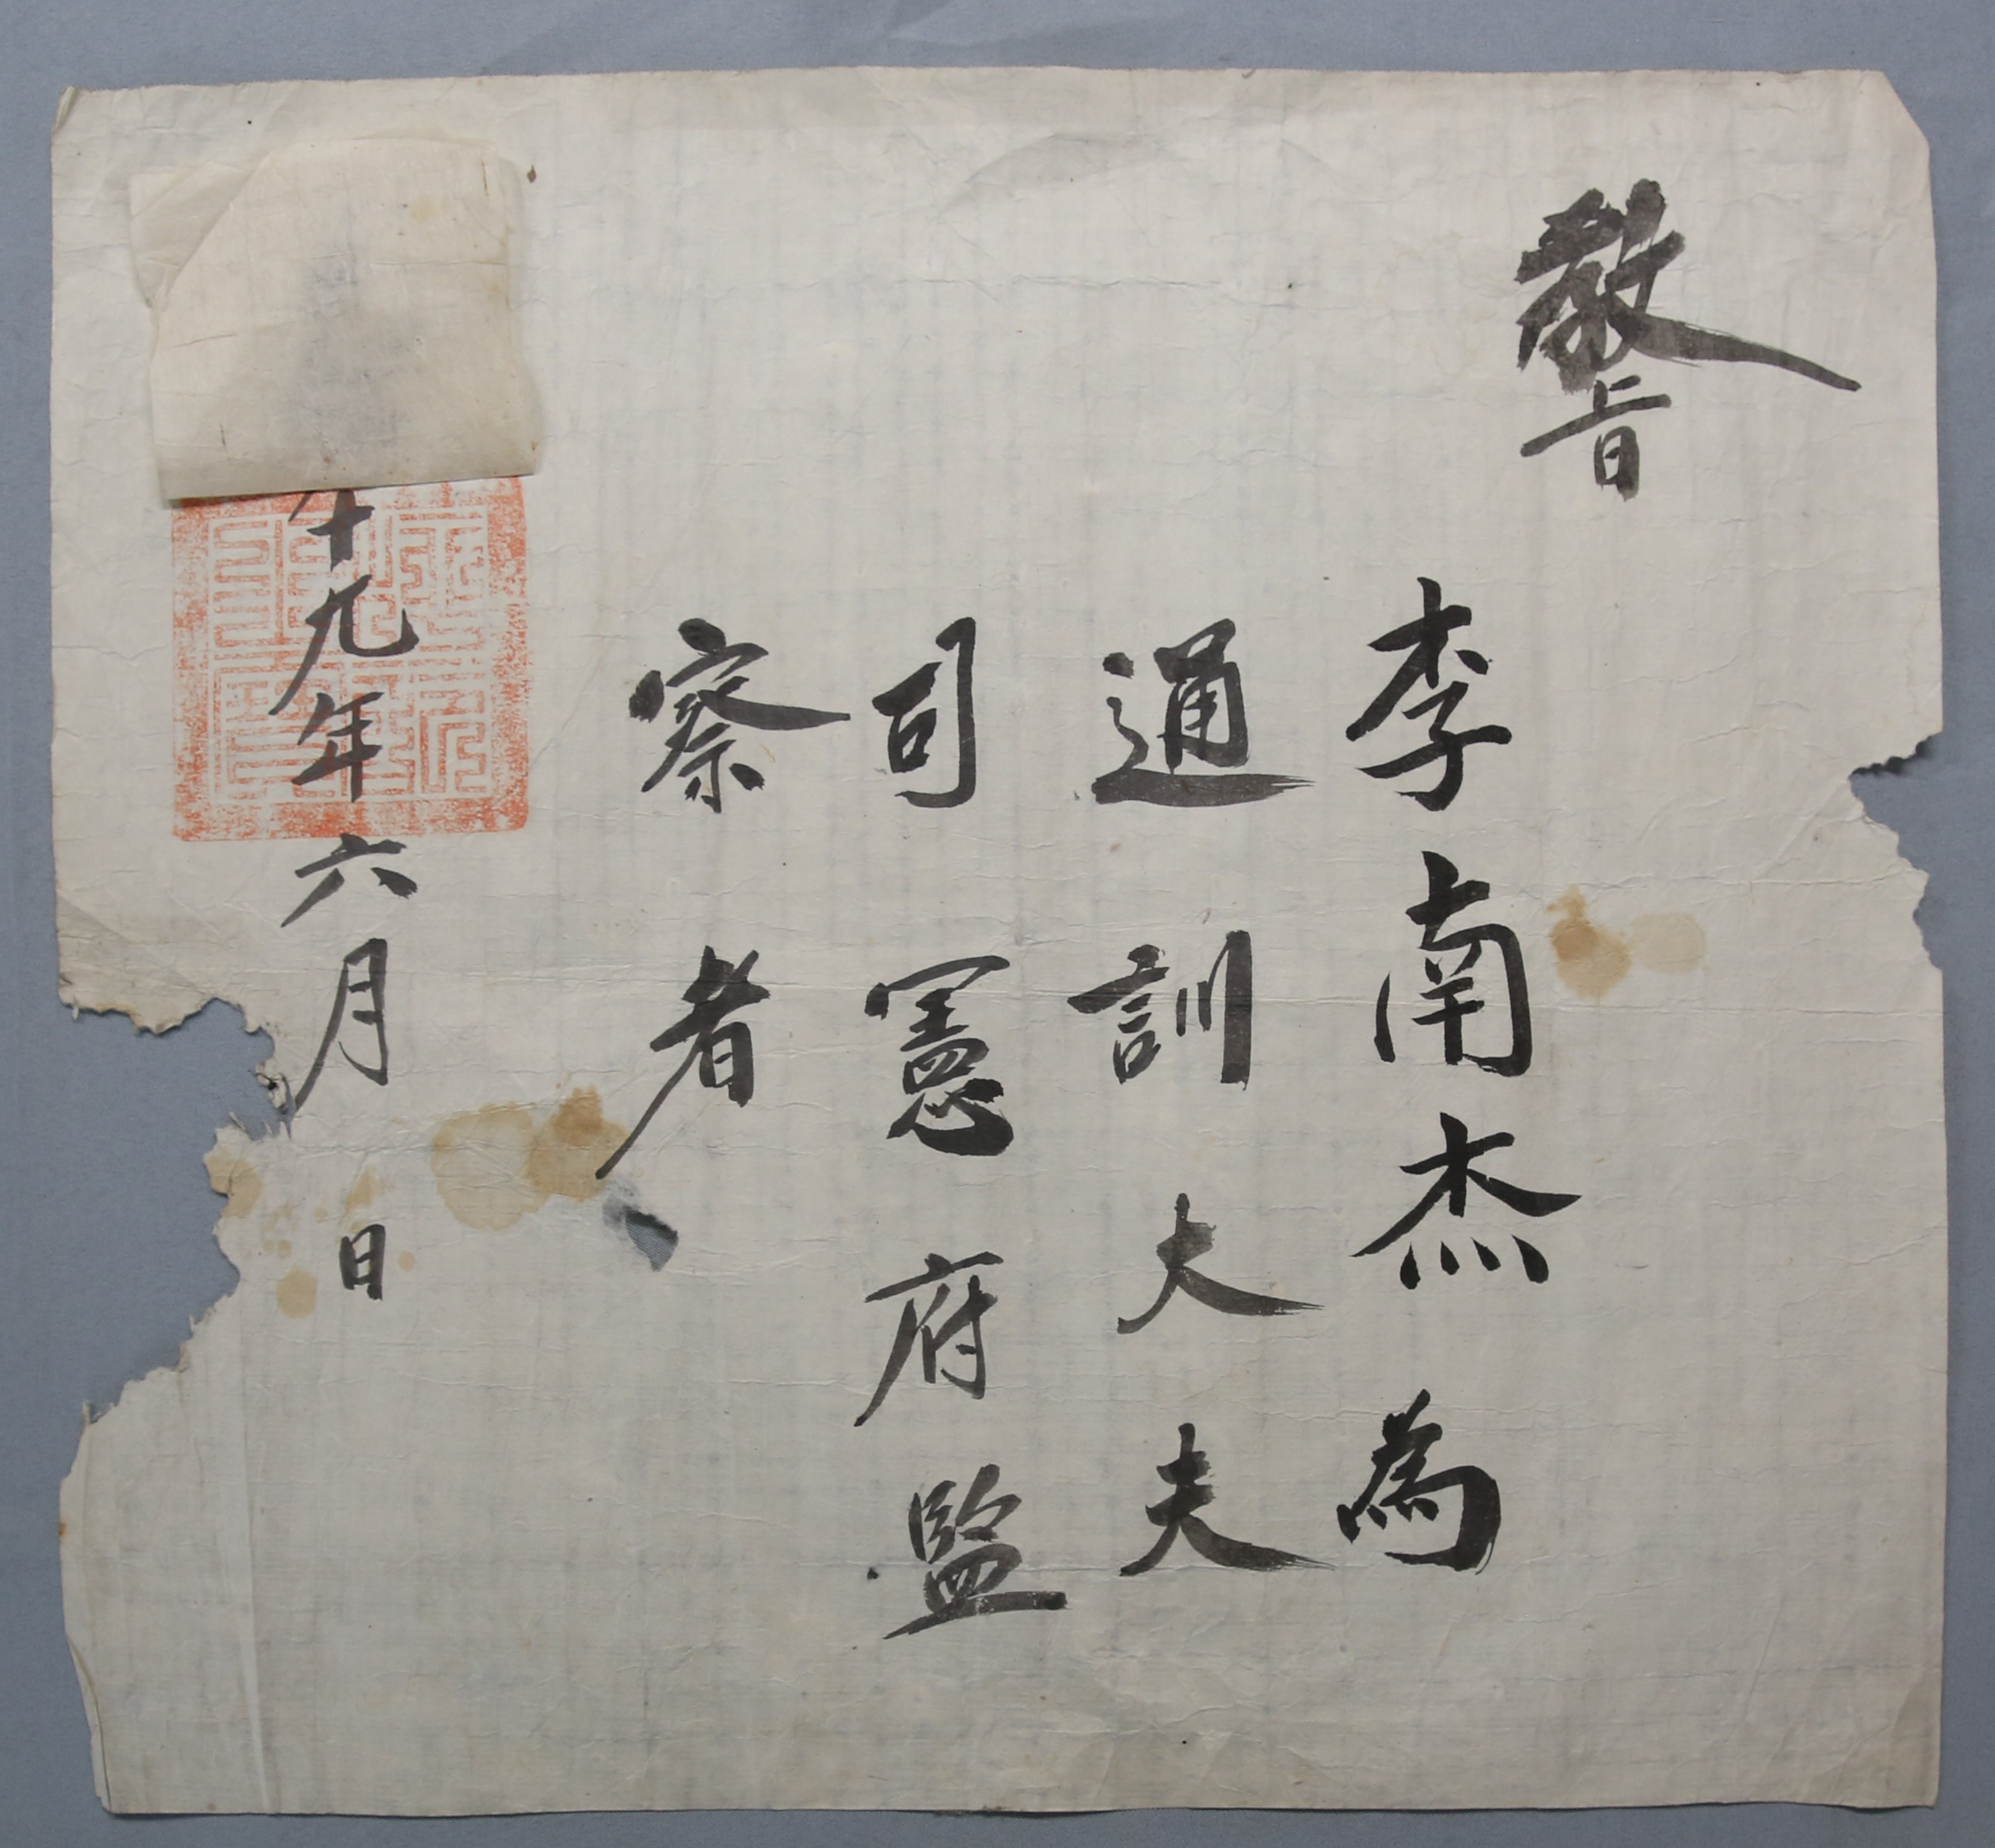 敎旨
李南杰為
通訓大夫
司憲府監
察者
十九年六月日